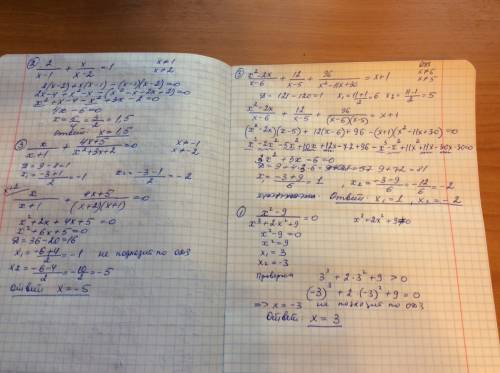 ② 2/(x-1) + x/(x-2) = 1    x≠1
x≠2
2(x-2)+x(x-1) - (x-1)(x-2)=0
4x-6=0
x = 6/4 = 3/2 = 1,5
Ответ: x=1,5
③ x/(x+1) + (4x+5)/(x²+3x+2) = 0    x≠-1
x≠-2
D=9-8=1
x₁ = (-3+1)/2 = -1    x₂ = (-3-1)/2 = -2
x+2
x/(x+1) + (4x+5)/((x+2)(x+1)) = 0
x²+2x+4x+5=0
x²+6x+5=0
D=36-20=16
x₁ = (-6+4)/2 = -1 не подходит по ОДЗ
x₂ = (-6-4)/2 = -10/2 = -5
Ответ: x=-5
(x²-2x)/(x-6) + 12/(x-5) + 36/(x²-11x+30) = x+1
ОДЗ
x≠6
x≠5
D = 121-120=1 x₁ = (11+1)/2 = 6 x₂ = (11-1)/2 = 5
(x²-2x)/(x-6) + 12/(x-5) + 36/((x-6)(x-5)) = x+1
(x²-2x)(x-5) + 12(x-6) + 36 - (x+1)(x²-11x+30) = 0
x = (-3+9)/6 = 1 , x₂ = (-3-9)/6 = -12/6 = -2
Ответ: x₁=1, x₂=-2
① (x²-9)/(x³+2x²+9) = 0    x³+2x²+9≠0
x²-9=0
x²=9
x₁=3
x₂=-3
Проверим 3³+2·3²+9>0
(-3)³+2·(-3)²+9=0
=> x=-3 не подходит по ОДЗ
Ответ: x=3